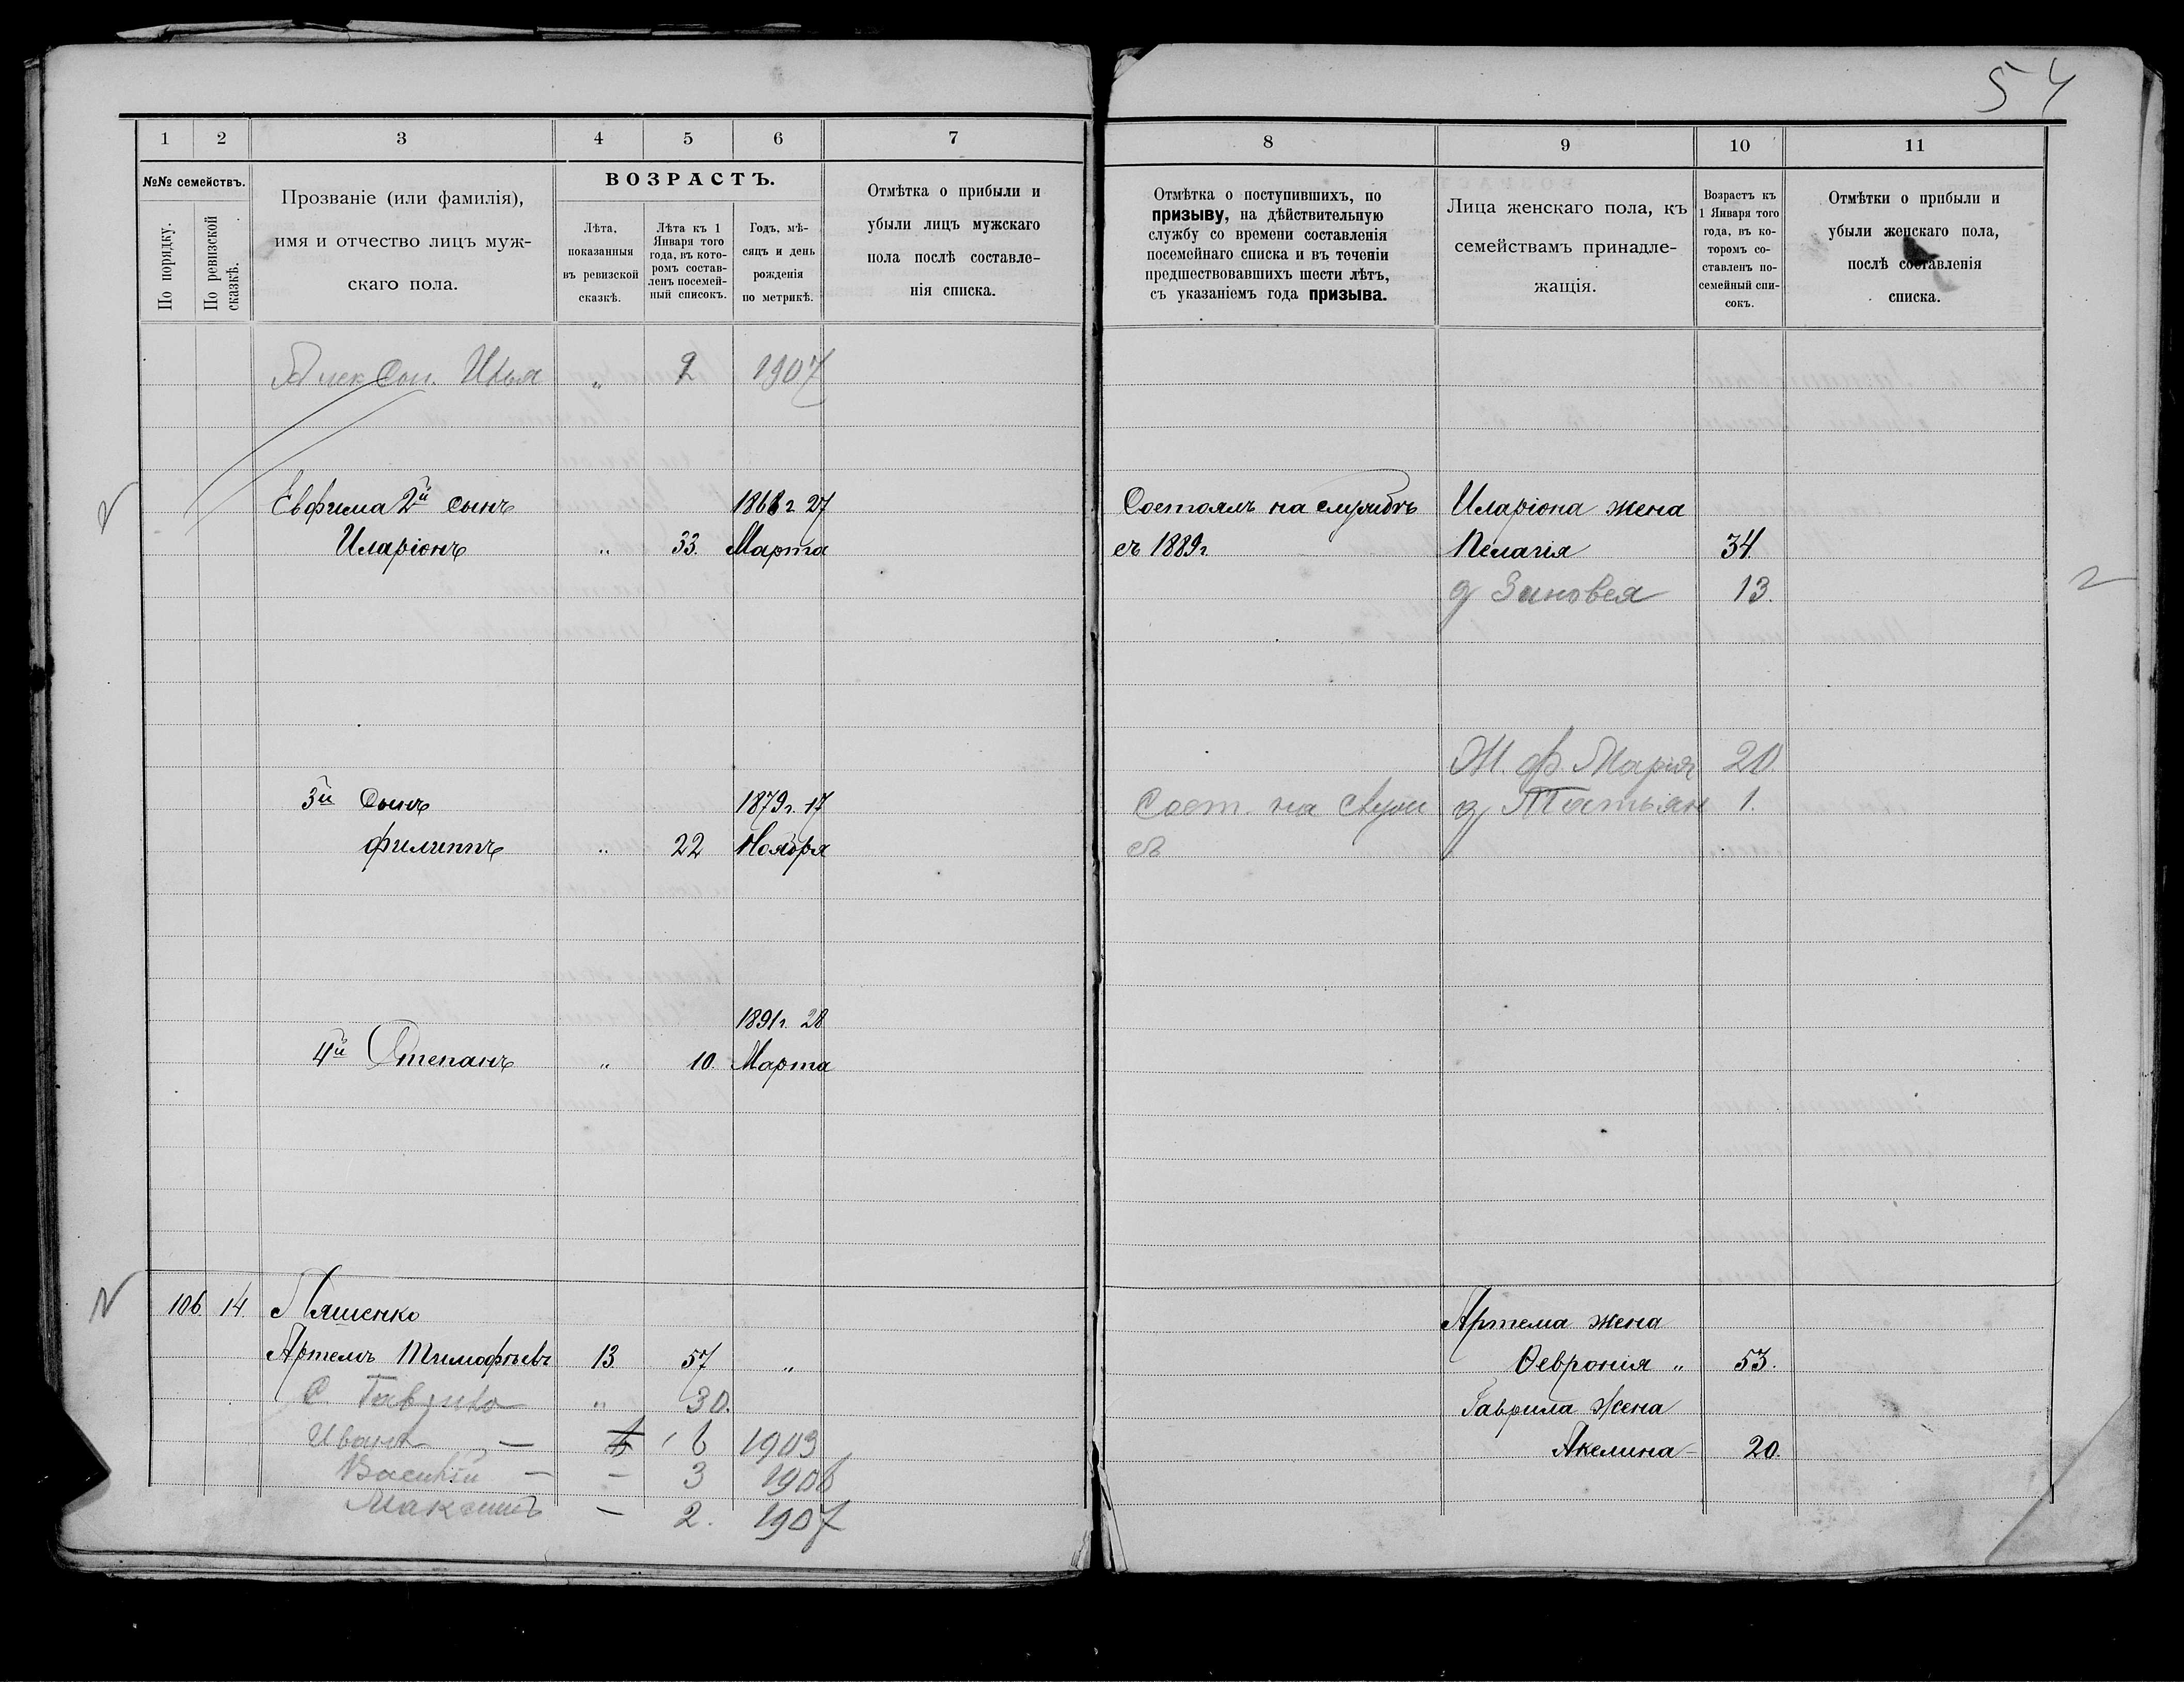 54
1 2 3 4 5 6 7
№№ семействъ.
По порядку.
По ревизской сказкѣ.
Прозваніе (или фамилія),
имя и отчество лицъ муж-
скаго пола.
ВОЗРАСТЪ.
Лѣта,
показанныя
въ ревизской
сказкѣ.
Лѣта къ 1
Января того
года, въ кото-
ромъ состав-
ленъ посемей-
ный списокъ.
Годъ, мѣ-
сяцъ и день
рожденія
по метрикѣ.
Отмѣтка о прибыли и
убыли лицъ мужскаго
пола послѣ составле-
нія списка.
Илья „ 2 1907
Евфима 2й сынъ 1868 г 27
Иларіонъ „ 33. Марта
3й Сынъ 1879 г. 17
Филиппъ „ 22 Ноября
1891 г. 28
4й Степанъ „ 10. Марта
106. 14. Ляшенко
Артемъ Тимофѣевъ 13 57 „
С. Гаврило „ 30.
Иванъ — 6 1903
Василій — — 3 1906
Максимъ — 2. 1907
8 9 10 11
Отмѣтка о поступившихъ, по
призыву, на дѣйствительную
службу со времени составленія
посемейнаго списка и въ теченіи
предшествовавшихъ шести лѣтъ,
съ указаніемъ года призыва.
Лица женскаго пола, къ
семействамъ принадле-
жащія.
Возрастъ къ
1 Января того
года, въ ко-
торомъ со-
ставленъ по-
семейный спи-
сокъ.
Отмѣтки о прибыли и
убыли женскаго пола,
послѣ составленія
списка.
Состоялъ на службѣ Иларіона жена
съ 1889 г. Пелагія 34.
д Зиновея 13.
Ж. Ф. Марія 20.
Сост. на служ д Татьян 1.
съ
Артема жена
Ѳевронія „ 53.
Гаврила Жена
Акелина — 20.